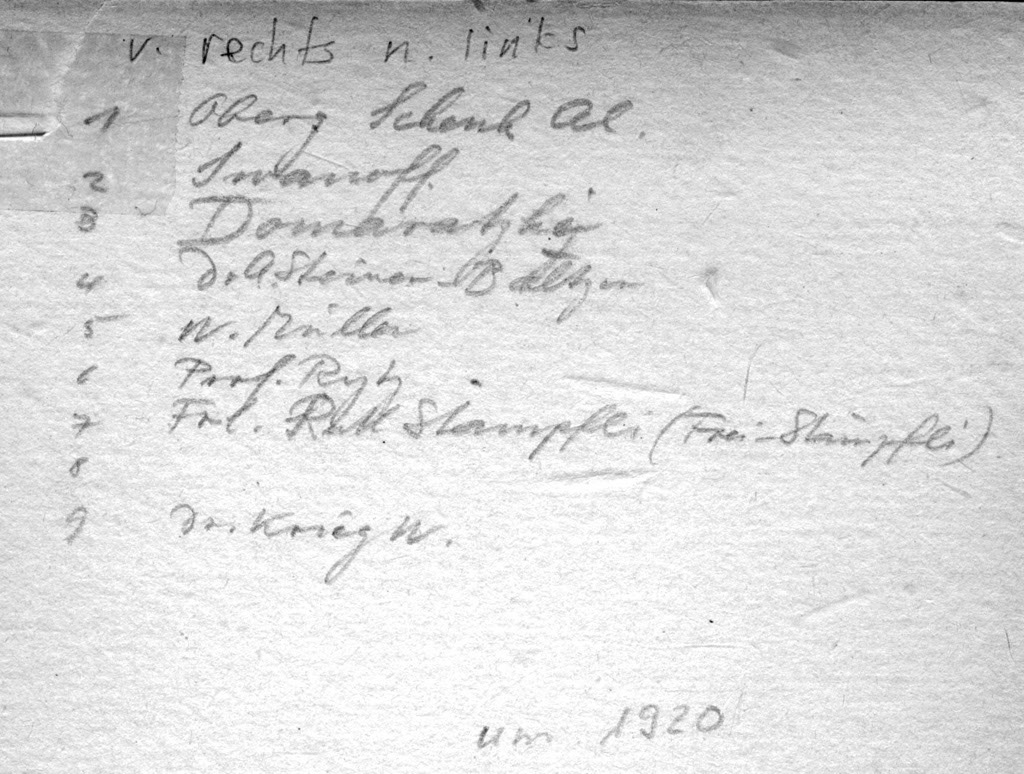 v. rechts n. links
1 Oberg Schenk Al.
2 Iwanoff
3
4 Dr. A. Steiner-Baltzer
5 W. Müller
6 Prof. Rytz
7 Frl. Ruth Stämpfli (Frei-Stämpfli)
8
9 Dr. Krieg W.
um 1920